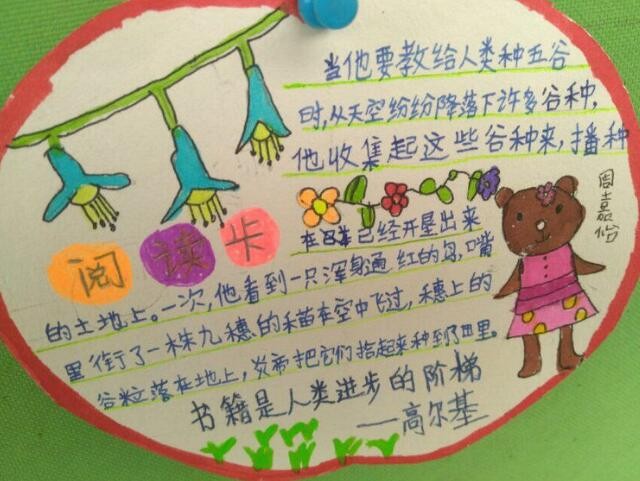 当他要教给人类种五谷
时,从天空纷纷降落下许多谷种,
他收集起这些谷种来,播种
周嘉怡
阅读卡
在已经开垦出来
的土地上。一次,他看到一只浑身通红的鸟,嘴
里衔了一株九穗的禾苗在空中飞过,穗上的
谷粒落在地上,炎帝把它们拾起来种到了田里。
书籍是人类进步的阶梯
——高尔基